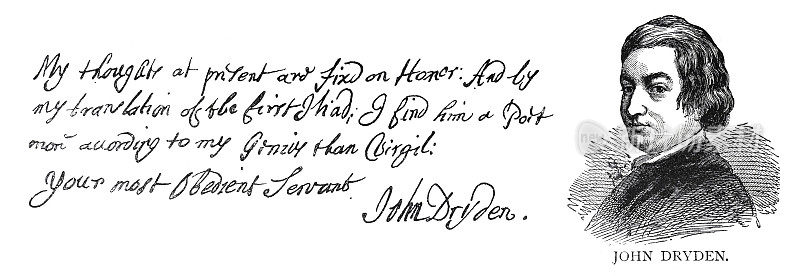 My thoughts at present are fixd on Homer: And by
my translation of the first Iliad; I find him a Poet
more according to my Genius than Virgil:
Your most Obedient Servant
John Dryden.
JOHN DRYDEN.